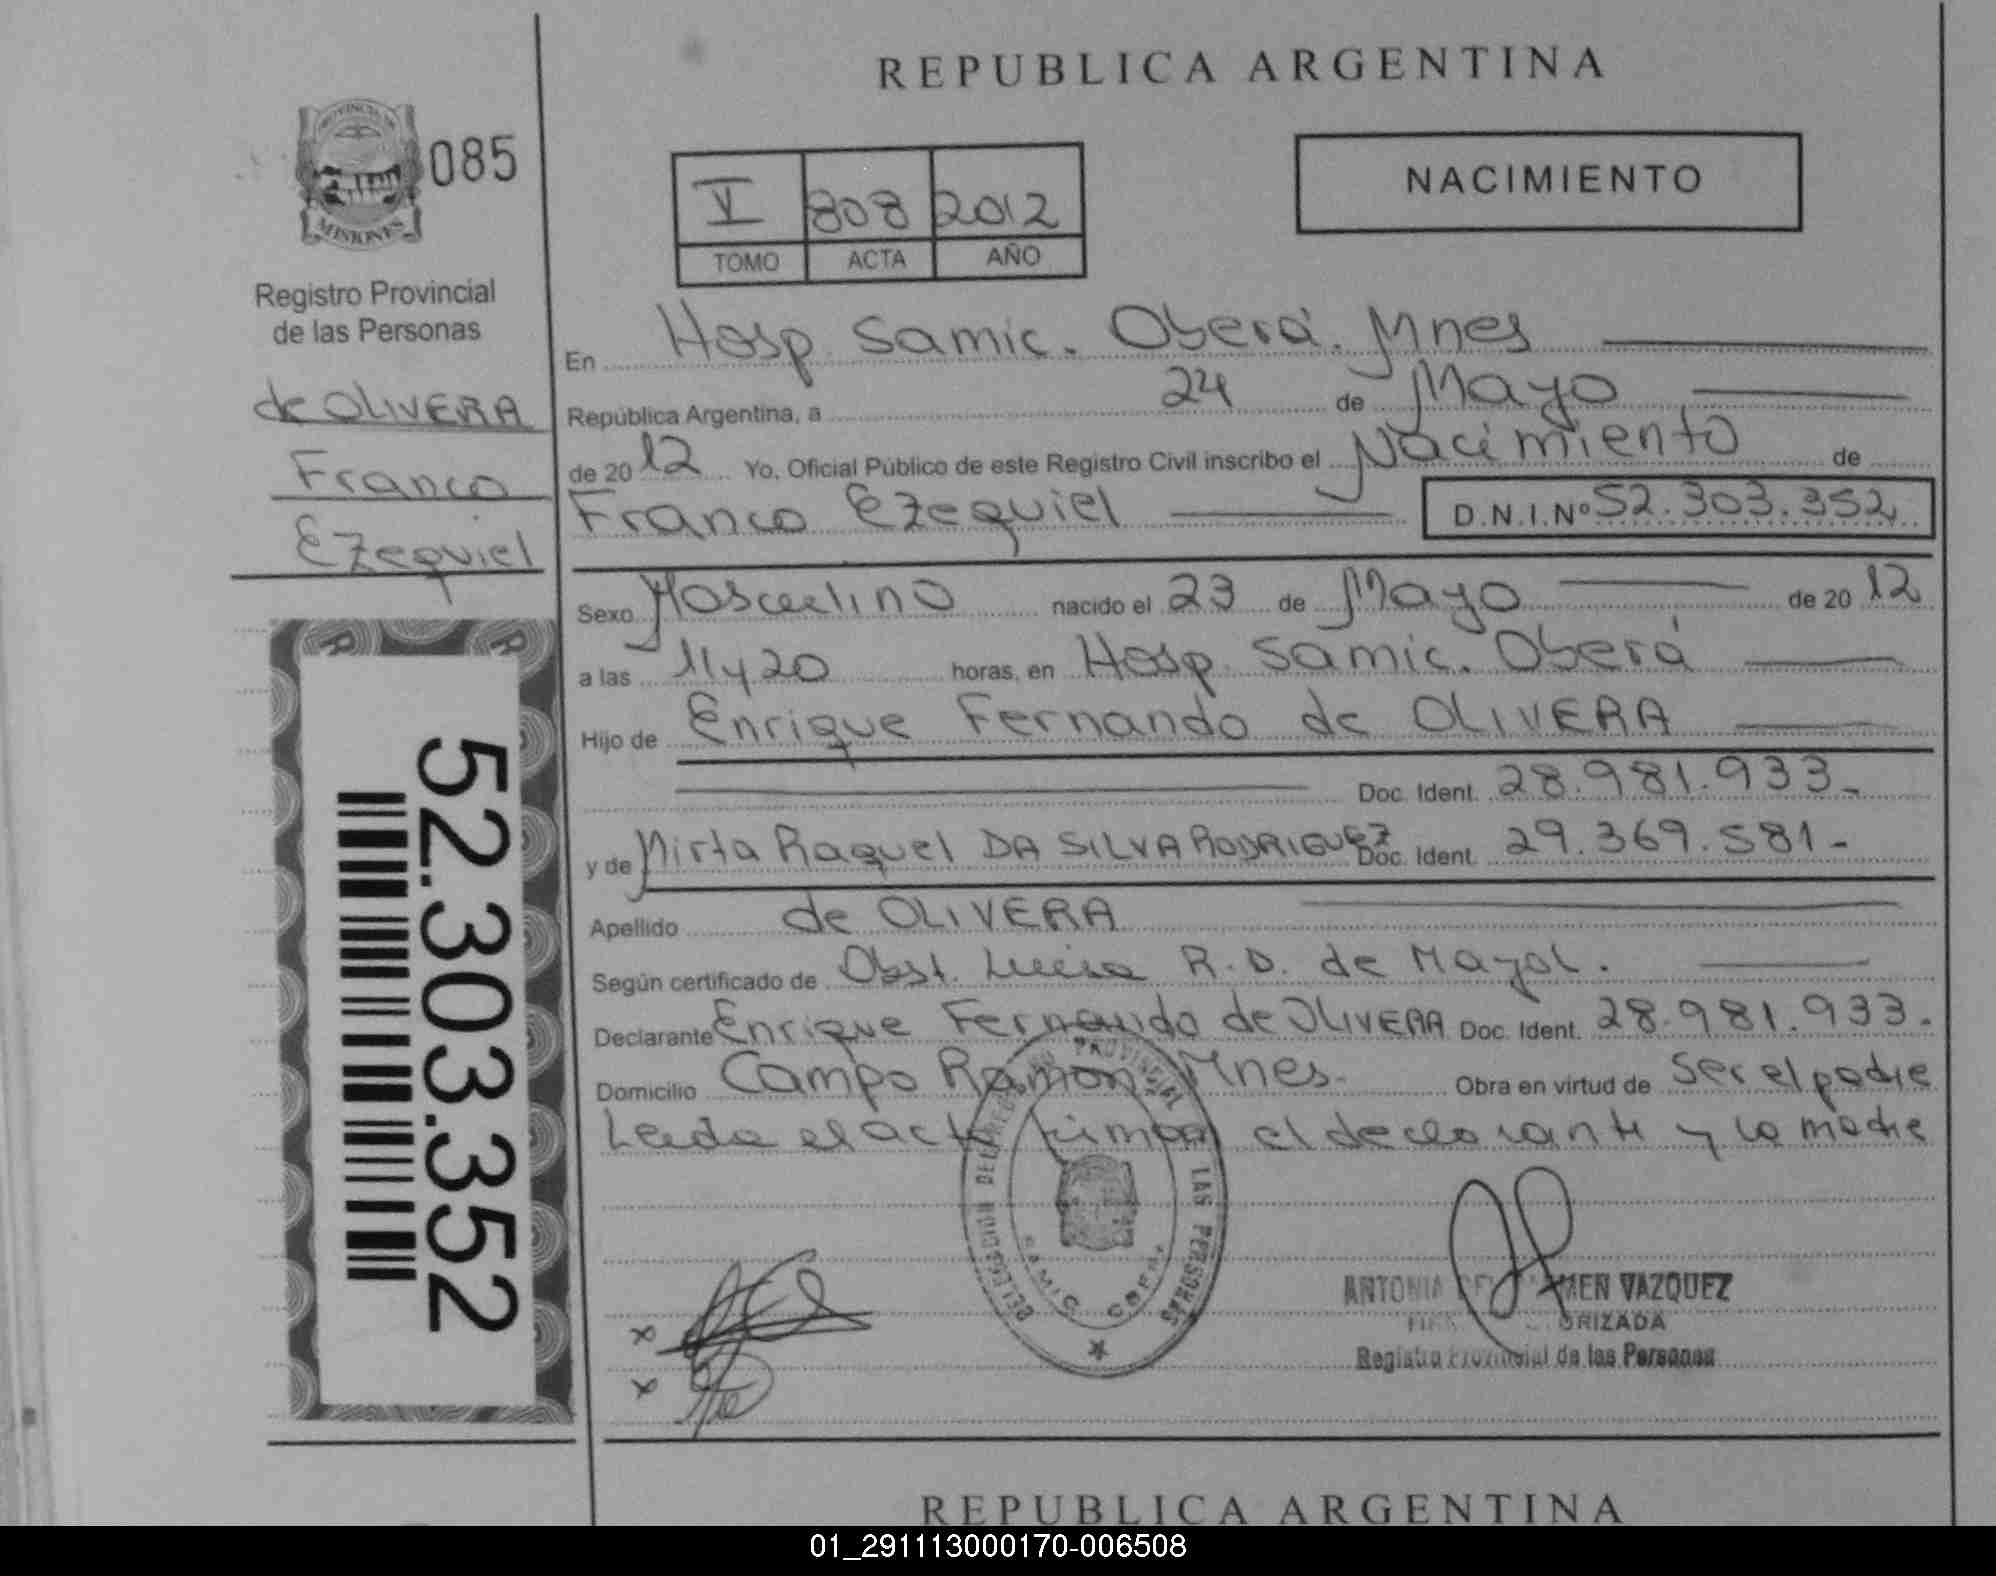 REPUBLICA ARGENTINA
PROVINCIA DE
MISIONES
085
Registro Provincial
de las Personas
de OLIVERA
Franco
Ezequiel
52.303.352
V 808 2012
TOMO ACTA AÑO
NACIMIENTO
En Hosp. Samic. Oberá. Mnes
República Argentina, a 24 de Mayo
de 2012 Yo, Oficial Público de este Registro Civil inscribo el Nacimiento de
Franco Ezequiel D.N.I.Nº 52.303.352
Sexo Masculino nacido el 23 de Mayo de 2012
a las 11 y 20 horas, en Hosp. Samic. Oberá
Hijo de Enrique Fernando de OLIVERA
Doc. Ident. 28.981.933-
y de Mirta Raquel DA SILVA RODRIGUEZ Doc. Ident. 29.369.581-
Apellido de OLIVERA
Según certificado de Obst. Lucia R. D. de Mayol.
Declarante Enrique Fernando de OLIVERA Doc. Ident. 28.981.933.
Domicilio Campo Ramon Mnes. Obra en virtud de ser el padre
Leida el acta firman el declarante y la madre
DELEGACION DEL REGISTRO PROVINCIAL DE LAS PERSONAS
SAMIC OBERA
x
x
ANTONIA DEL CARMEN VAZQUEZ
Registro Provincial de las Personas
REPUBLICA ARGENTINA
01_291113000170-006508